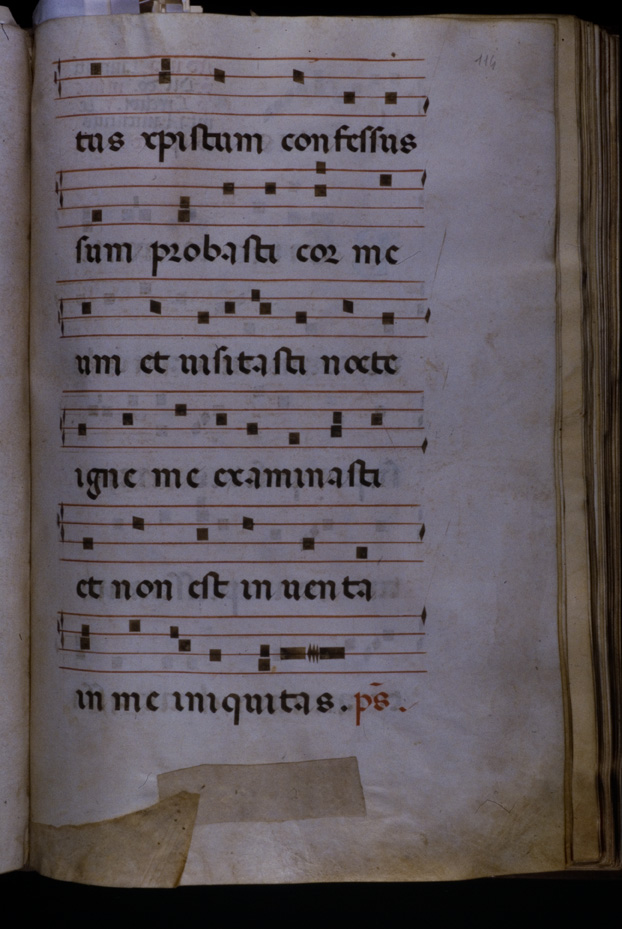 114
tus xpistum confessus
sum probasti cor me
um et uisitasti nocte
igne me examinasti
et non est in uenta
in me iniquitas. ps.